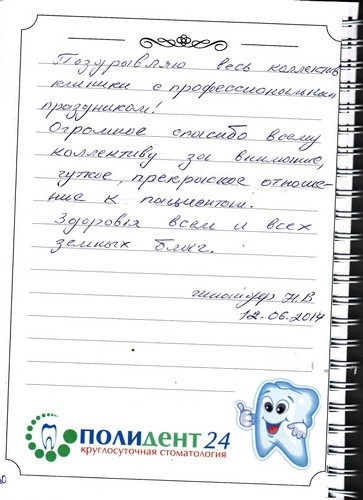 Поздравляю весь коллектив
клиники с профессиональным
праздником!
Огромное спасибо всему
коллективу за внимание,
чуткое, прекрасное отноше-
ние к пациентам.
Здоровья всем и всех
земных благ.
Н.В
12.06.2014
ПОЛИДЕНТ 24
круглосуточная стоматология